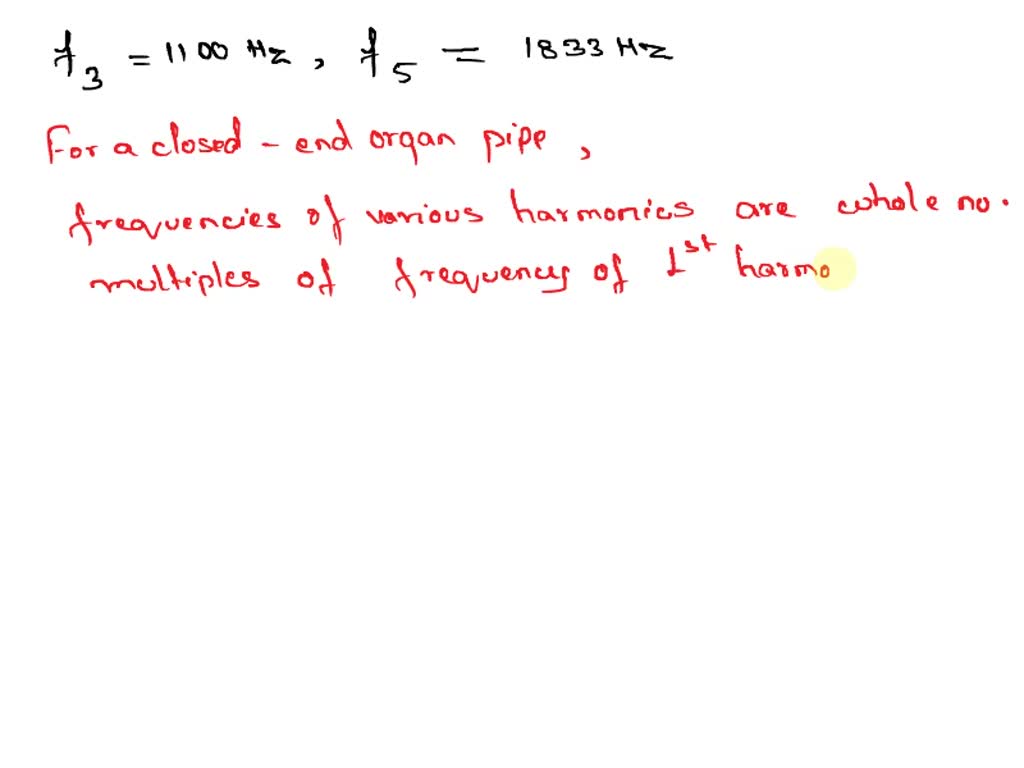 f₃ = 1100 Hz, f₅ = 1833 Hz
For a closed - end organ pipe,
frequencies of various harmonics are whole no.
multiples of frequency of 1st harmo